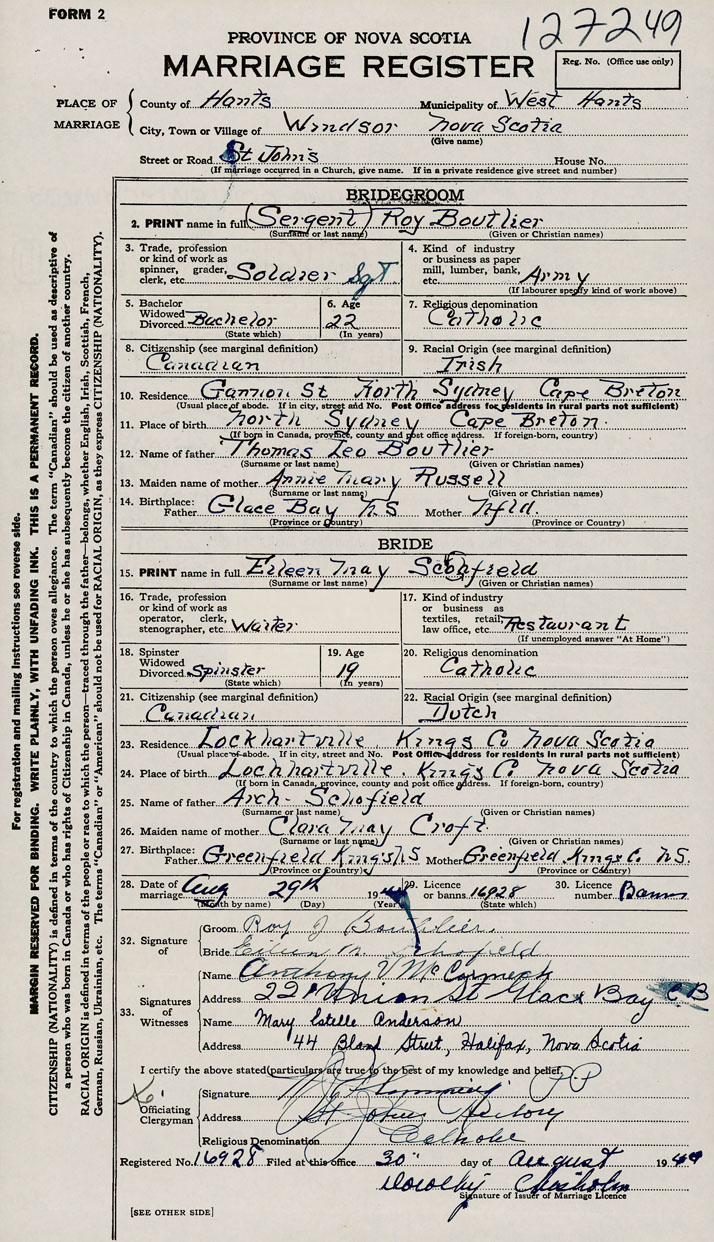 FORM 2
127249
PROVINCE OF NOVA SCOTIA
MARRIAGE REGISTER
Reg. No. (Office use only)
PLACE OF MARRIAGE
County of Hants Municipality of West Hants
City, Town or Village of Windsor Nova Scotia
(Give name)
Street or Road St John's House No.
(If marriage occurred in a Church, give name. If in a private residence give street and number)
BRIDEGROOM
2. PRINT name in full (Sergent) Roy Boutlier
(Surname or last name) (Given or Christian names)
3. Trade, profession or kind of work as spinner, grader, clerk, etc. Soldier Sgt
4. Kind of industry or business as paper mill, lumber, bank, etc. Army
(If labourer specify kind of work above)
5. Bachelor Widowed Divorced Bachelor
(State which)
6. Age 22
(In years)
7. Religious denomination
Catholic
8. Citizenship (see marginal definition)
Canadian
9. Racial Origin (see marginal definition)
Irish
10. Residence Gannon St North Sydney Cape Breton
(Usual place of abode. If in city, street and No. Post Office address for residents in rural parts not sufficient)
11. Place of birth North Sydney Cape Breton.
(If born in Canada, province, county and post office address. If foreign-born, country)
12. Name of father Thomas Leo Boutlier
(Surname or last name) (Given or Christian names)
13. Maiden name of mother Annie Mary Russell
(Surname or last name) (Given or Christian names)
14. Birthplace: Father Glace Bay N S Mother Nfld.
(Province or Country) (Province or Country)
BRIDE
15. PRINT name in full Eileen May Schofield
(Surname or last name) (Given or Christian names)
16. Trade, profession or kind of work as operator, clerk, stenographer, etc. Waiter
17. Kind of industry or business as textiles, retail, law office, etc. Restaurant
(If unemployed answer "At Home")
18. Spinster Widowed Divorced Spinster
(State which)
19. Age 19
(In years)
20. Religious denomination
Catholic
21. Citizenship (see marginal definition)
Canadian
22. Racial Origin (see marginal definition)
Dutch
23. Residence Lockhartville, Kings C. Nova Scotia
(Usual place of abode. If in city, street and No. Post Office address for residents in rural parts not sufficient)
24. Place of birth Lockhartville. Kings C. Nova Scotia
(If born in Canada, province, county and post office address. If foreign-born, country)
25. Name of father Arch- Schofield
(Surname or last name) (Given or Christian names)
26. Maiden name of mother Clara May Croft.
(Surname or last name) (Given or Christian names)
27. Birthplace: Father Greenfield Kings N S Mother Greenfield Kings C. N.S.
(Province or Country) (Province or Country)
28. Date of marriage Aug 29th 19
(Month by name) (Day) (Year)
29. Licence or banns 16928
(State which)
30. Licence number Banns
32. Signature of
Groom Roy J Bouthlier.
Bride Eileen M Schofield
33. Signatures of Witnesses
Name Anthony V McCormick
Address 22 Union St Glace Bay C B
Name Mary Estelle Anderson
Address 44 Bland Street, Halifax, Nova Scotia
I certify the above stated particulars are true to the best of my knowledge and belief.
Officiating Clergyman
Signature P P
Address St Johns Rectory
Religious Denomination Catholic
Registered No. 16928 Filed at this office 30" day of August 19
Dorothy Chisholm
Signature of Issuer of Marriage Licence
[SEE OTHER SIDE]
For registration and mailing instructions see reverse side.
MARGIN RESERVED FOR BINDING. WRITE PLAINLY, WITH UNFADING INK. THIS IS A PERMANENT RECORD.
CITIZENSHIP (NATIONALITY) is defined in terms of the country to which the person owes allegiance. The term "Canadian" should be used as descriptive of
a person who was born in Canada or who has rights of Citizenship in Canada, unless he or she has subsequently become the citizen of another country.
RACIAL ORIGIN is defined in terms of the people or race to which the person—traced through the father—belongs, whether English, Irish, Scottish, French,
German, Russian, Ukrainian, etc. The terms "Canadian" or "American" should not be used for RACIAL ORIGIN, as they express CITIZENSHIP (NATIONALITY).